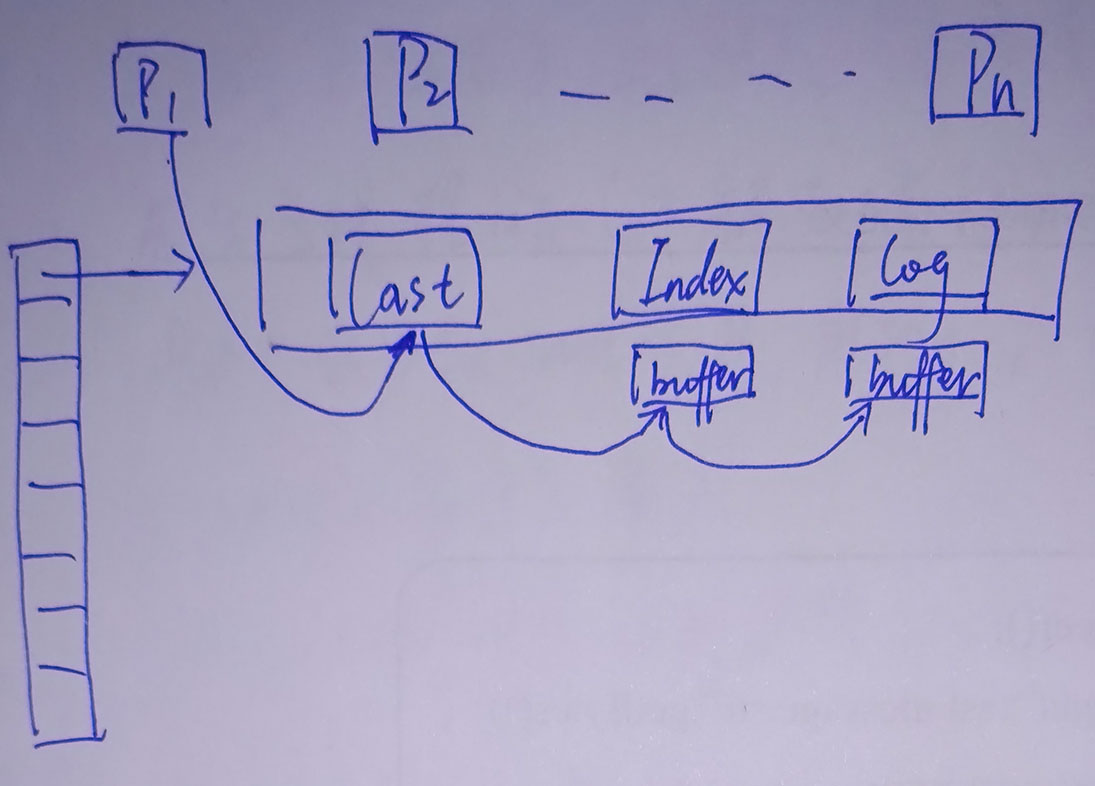 P1 P2 Pn
Cast Index Log
buffer buffer